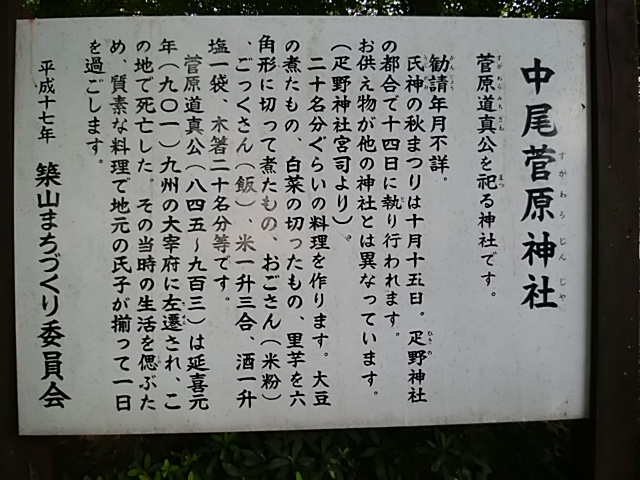 中尾菅原神社
すがわらじんじゃ
菅原道真公を祀る神社です。
すがわらみちざね
まつ
勧請年月不詳。
かんじょう
氏神の秋まつりは十月十五日。疋野神社
ひきの
の都合で十四日に執り行われます。
お供え物が他の神社とは異なっています。
(疋野神社宮司より)。
二十名分ぐらいの料理を作ります。大豆
の煮たもの、白菜の切ったもの、里芋を六
角形に切って煮たもの、おごさん(米粉)
、ごっくさん(飯)、米一升三合、酒一升
塩一袋、木箸二十名分等です。
菅原道真公(八四五〜九百三)は延喜元
年(九〇一)九州の大宰府に左遷され、こ
の地で死亡した。その当時の生活を偲ぶた
め、質素な料理で地元の氏子が揃って一日
を過ごします。
平成十七年 築山まちづくり委員会